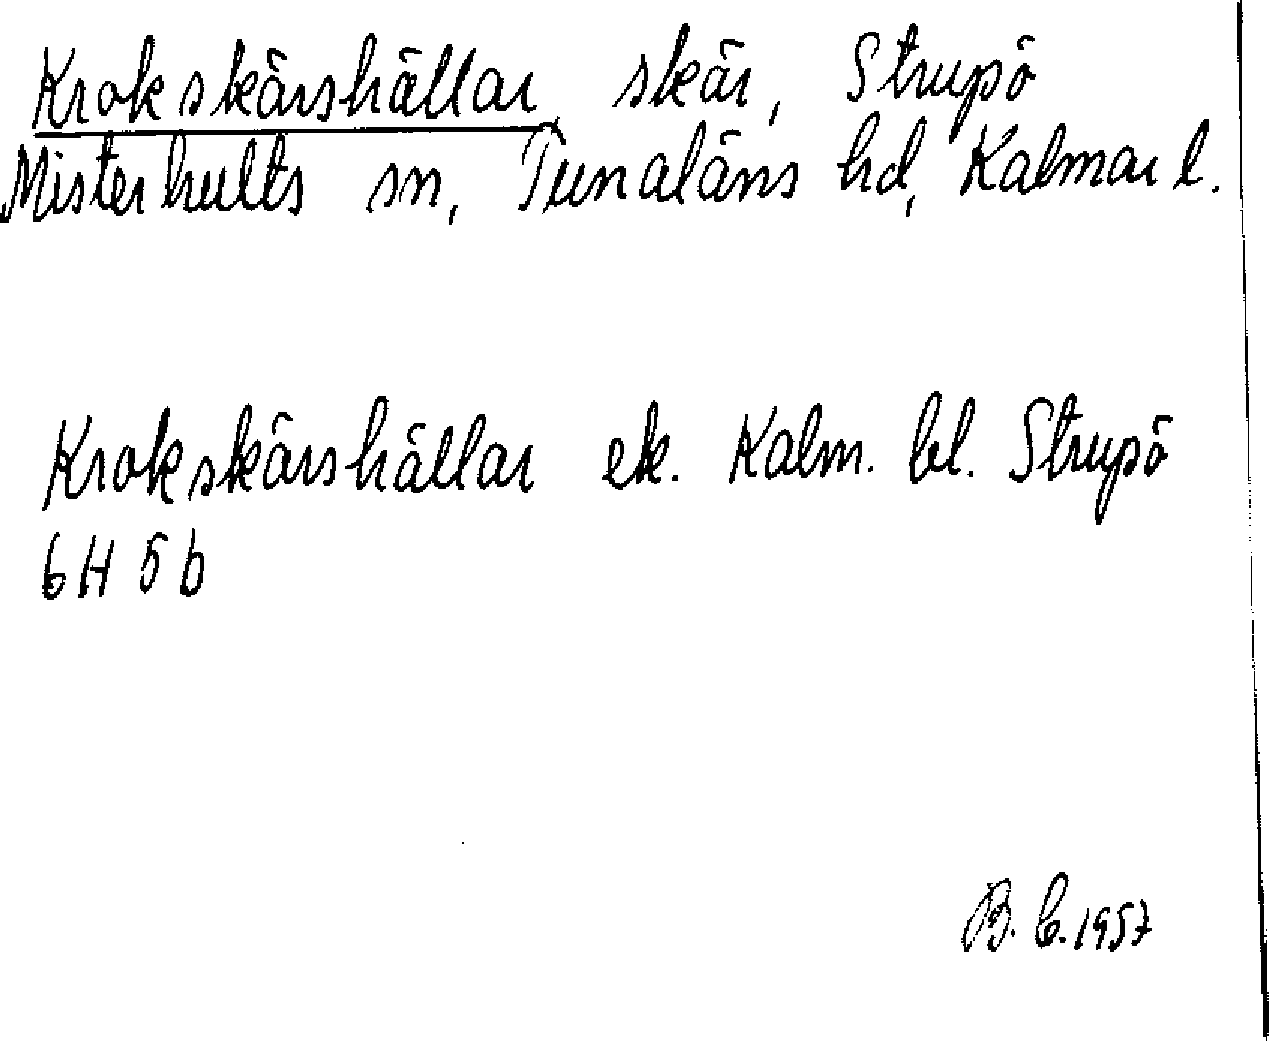 Krokskärshällar, skär, Strupö
Misterhults sn, Tunaläns hd, Kalmar l.
Krokskärshällar ek. Kalm. bl. Strupö
6H 5b
B. C. 1957